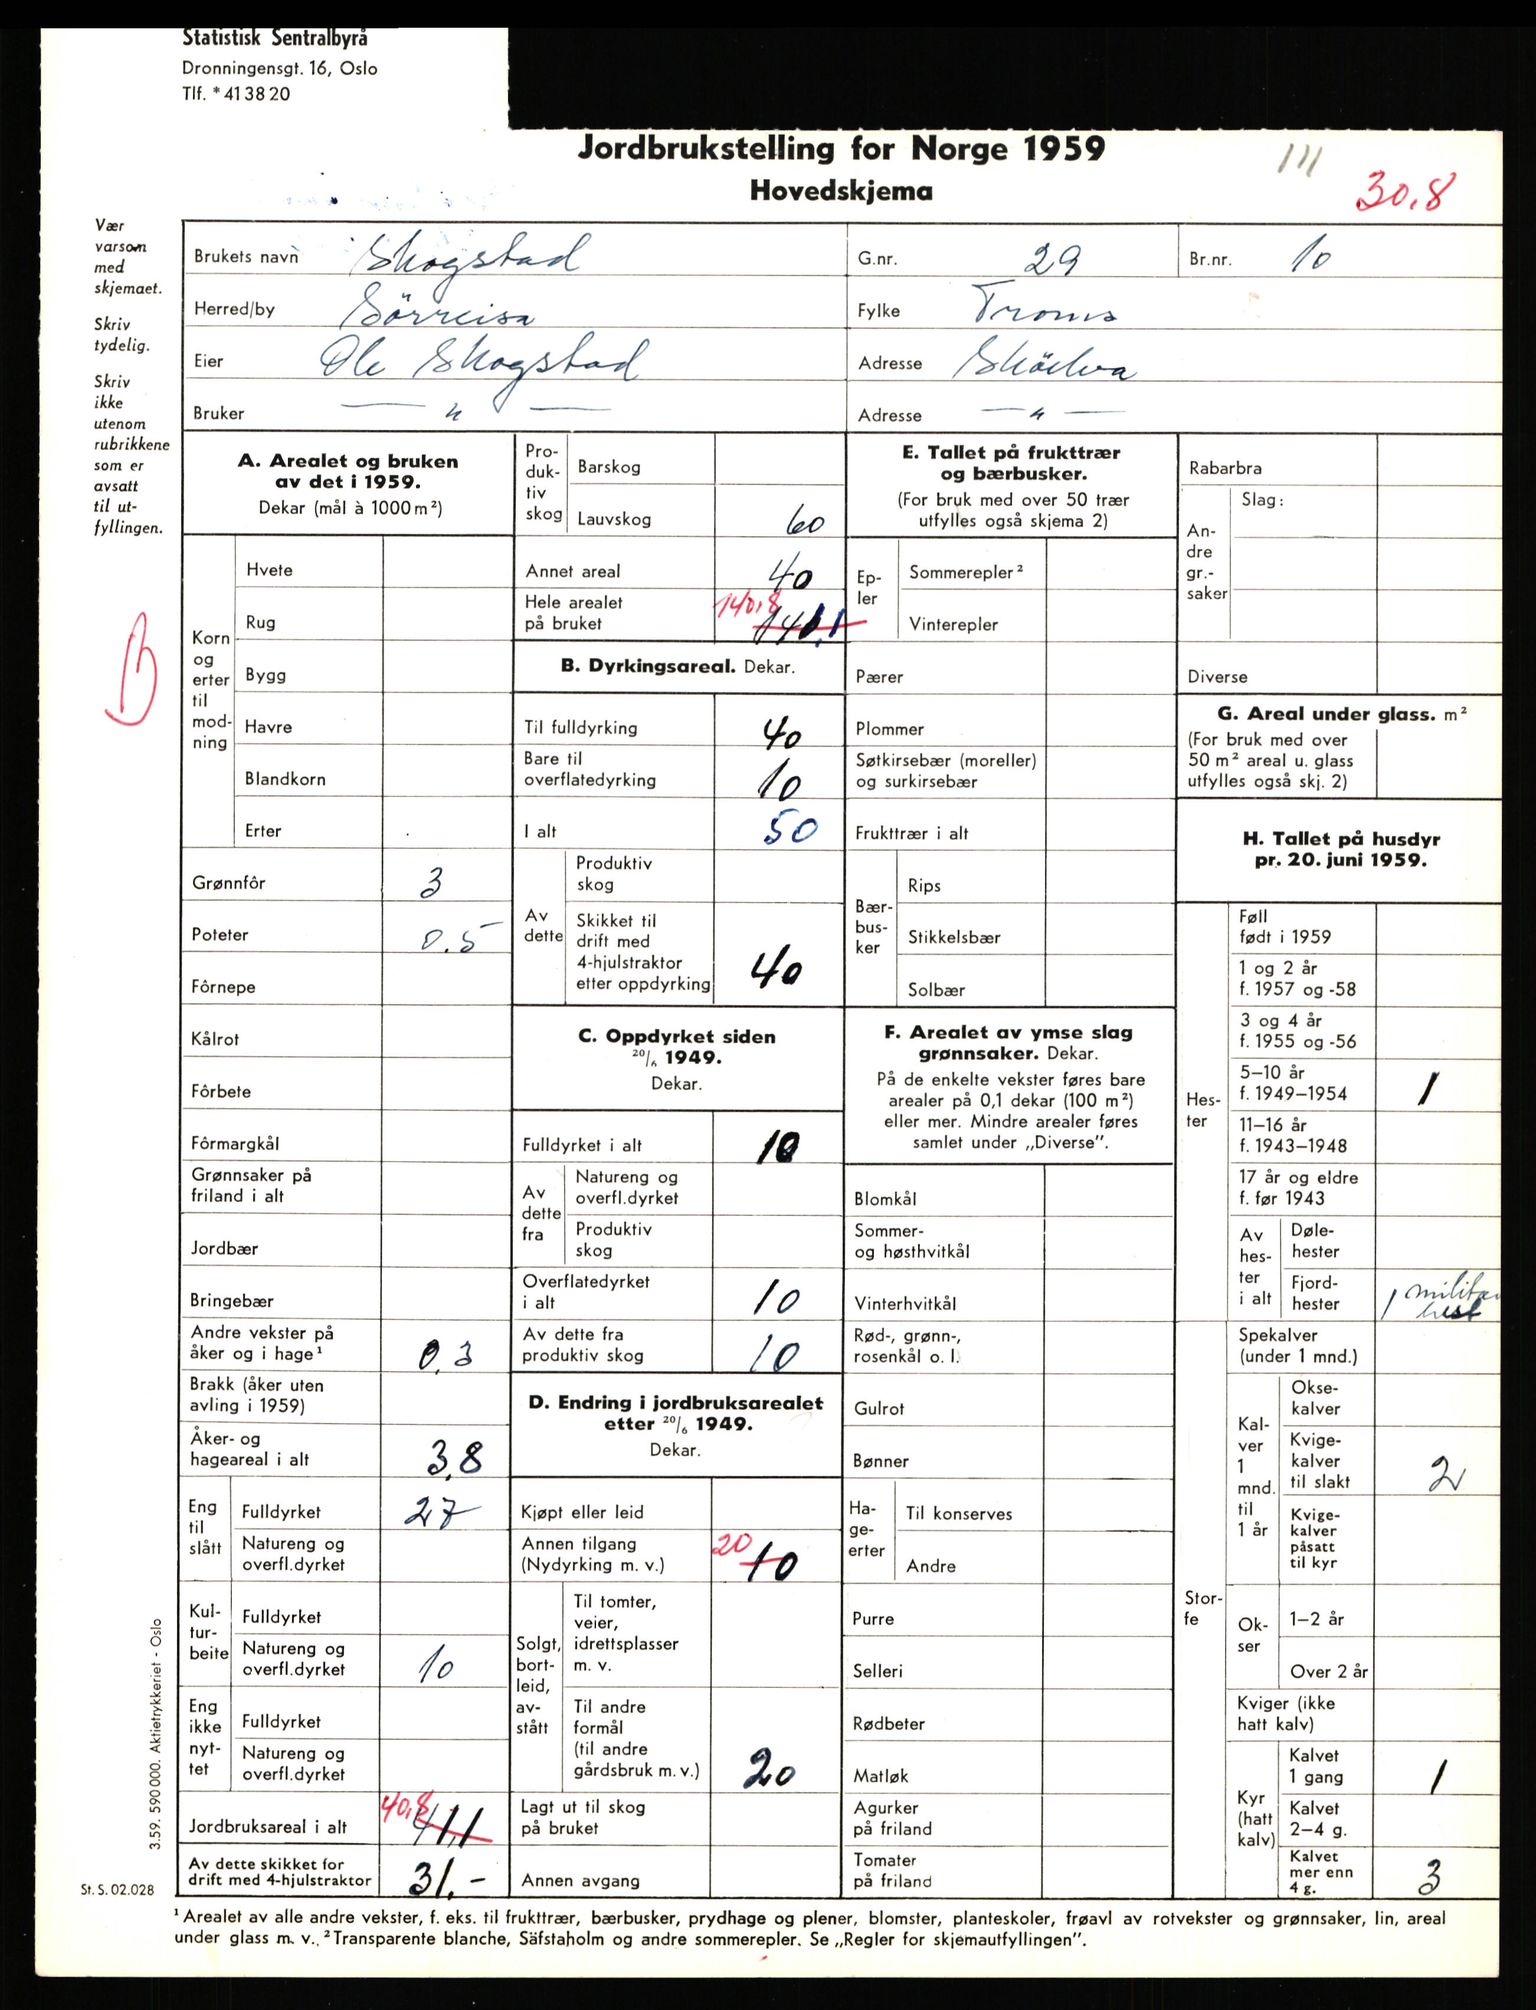 Statistisk Sentralbyrå
Dronningensgt. 16, Oslo
Tlf. * 41 38 20
Jordbrukstelling for Norge 1959
Hovedskjema
111
30.8
Vær
varsom
med
skjemaet.
Skriv
tydelig.
Skriv
ikke
utenom
rubrikkene
som er
avsatt
til ut-
fyllingen.
B
Brukets navn Skogstad
G.nr. 29
Br.nr. 10
Herred/by Sörreisa
Fylke Troms
Eier Ole Skogstad
Adresse Sköelva
Bruker — " —
Adresse — " —
A. Arealet og bruken
av det i 1959.
Dekar (mål à 1000 m²)
Korn
og
erter
til
mod-
ning
Hvete
Rug
Bygg
Havre
Blandkorn
Erter
Grønnfôr 3
Poteter 0.5
Fôrnepe
Kålrot
Fôrbete
Fôrmargkål
Grønnsaker på
friland i alt
Jordbær
Bringebær
Andre vekster på
åker og i hage¹ 0,3
Brakk (åker uten
avling i 1959)
Åker- og
hageareal i alt 3,8
Eng
til
slått
Fulldyrket 27
Natureng og
overfl.dyrket
Kul-
tur-
beite
Fulldyrket
Natureng og
overfl.dyrket 10
Eng
ikke
nyt-
tet
Fulldyrket
Natureng og
overfl.dyrket
Jordbruksareal i alt 40,8 41,1
Av dette skikket for
drift med 4-hjulstraktor 31.-
Pro-
duk-
tiv
skog
Barskog
Lauvskog 60
Annet areal 40
Hele arealet
på bruket 140,8 141,1
B. Dyrkingsareal. Dekar.
Til fulldyrking 40
Bare til
overflatedyrking 10
I alt 50
Av
dette
Produktiv
skog
Skikket til
drift med
4-hjulstraktor
etter oppdyrking 40
C. Oppdyrket siden
20/6 1949.
Dekar.
Fulldyrket i alt 10
Av
dette
fra
Natureng og
overfl.dyrket
Produktiv
skog
Overflatedyrket
i alt 10
Av dette fra
produktiv skog 10
D. Endring i jordbruksarealet
etter 20/6 1949.
Dekar.
Kjøpt eller leid
Annen tilgang
(Nydyrking m. v.) 20 10
Solgt,
bort-
leid,
av-
stått
Til tomter,
veier,
idrettsplasser
m. v.
Til andre
formål
(til andre
gårdsbruk m. v.) 20
Lagt ut til skog
på bruket
Annen avgang
E. Tallet på frukttrær
og bærbusker.
(For bruk med over 50 trær
utfylles også skjema 2)
Ep-
ler
Sommerepler²
Vinterepler
Pærer
Plommer
Søtkirsebær (moreller)
og surkirsebær
Frukttrær i alt
Bær-
bus-
ker
Rips
Stikkelsbær
Solbær
F. Arealet av ymse slag
grønnsaker. Dekar.
På de enkelte vekster føres bare
arealer på 0,1 dekar (100 m²)
eller mer. Mindre arealer føres
samlet under „Diverse".
Blomkål
Sommer-
og høsthvitkål
Vinterhvitkål
Rød-, grønn-,
rosenkål o. l.
Gulrot
Bønner
Ha-
ge-
erter
Til konserves
Andre
Purre
Selleri
Rødbeter
Matløk
Agurker
på friland
Tomater
på friland
Rabarbra
An-
dre
gr.-
saker
Slag:
Diverse
G. Areal under glass. m²
(For bruk med over
50 m² areal u. glass
utfylles også skj. 2)
H. Tallet på husdyr
pr. 20. juni 1959.
Hes-
ter
Føll
født i 1959
1 og 2 år
f. 1957 og -58
3 og 4 år
f. 1955 og -56
5–10 år
f. 1949–1954 1
11–16 år
f. 1943–1948
17 år og eldre
f. før 1943
Av
hes-
ter
i alt
Døle-
hester
Fjord-
hester 1 militær
hest
Stor-
fe
Spekalver
(under 1 mnd.)
Kal-
ver
1
mnd.
til
1 år
Okse-
kalver
Kvige-
kalver
til slakt 2
Kvige-
kalver
påsatt
til kyr
Ok-
ser
1–2 år
Over 2 år
Kviger (ikke
hatt kalv)
Kyr
(hatt
kalv)
Kalvet
1 gang 1
Kalvet
2–4 g.
Kalvet
mer enn
4 g. 3
3.59. 590 000. Aktietrykkeriet - Oslo
St. S. 02.028
¹ Arealet av alle andre vekster, f. eks. til frukttrær, bærbusker, prydhage og plener, blomster, planteskoler, frøavl av rotvekster og grønnsaker, lin, areal
under glass m. v.. ² Transparente blanche, Säfstaholm og andre sommerepler. Se „Regler for skjemautfyllingen".